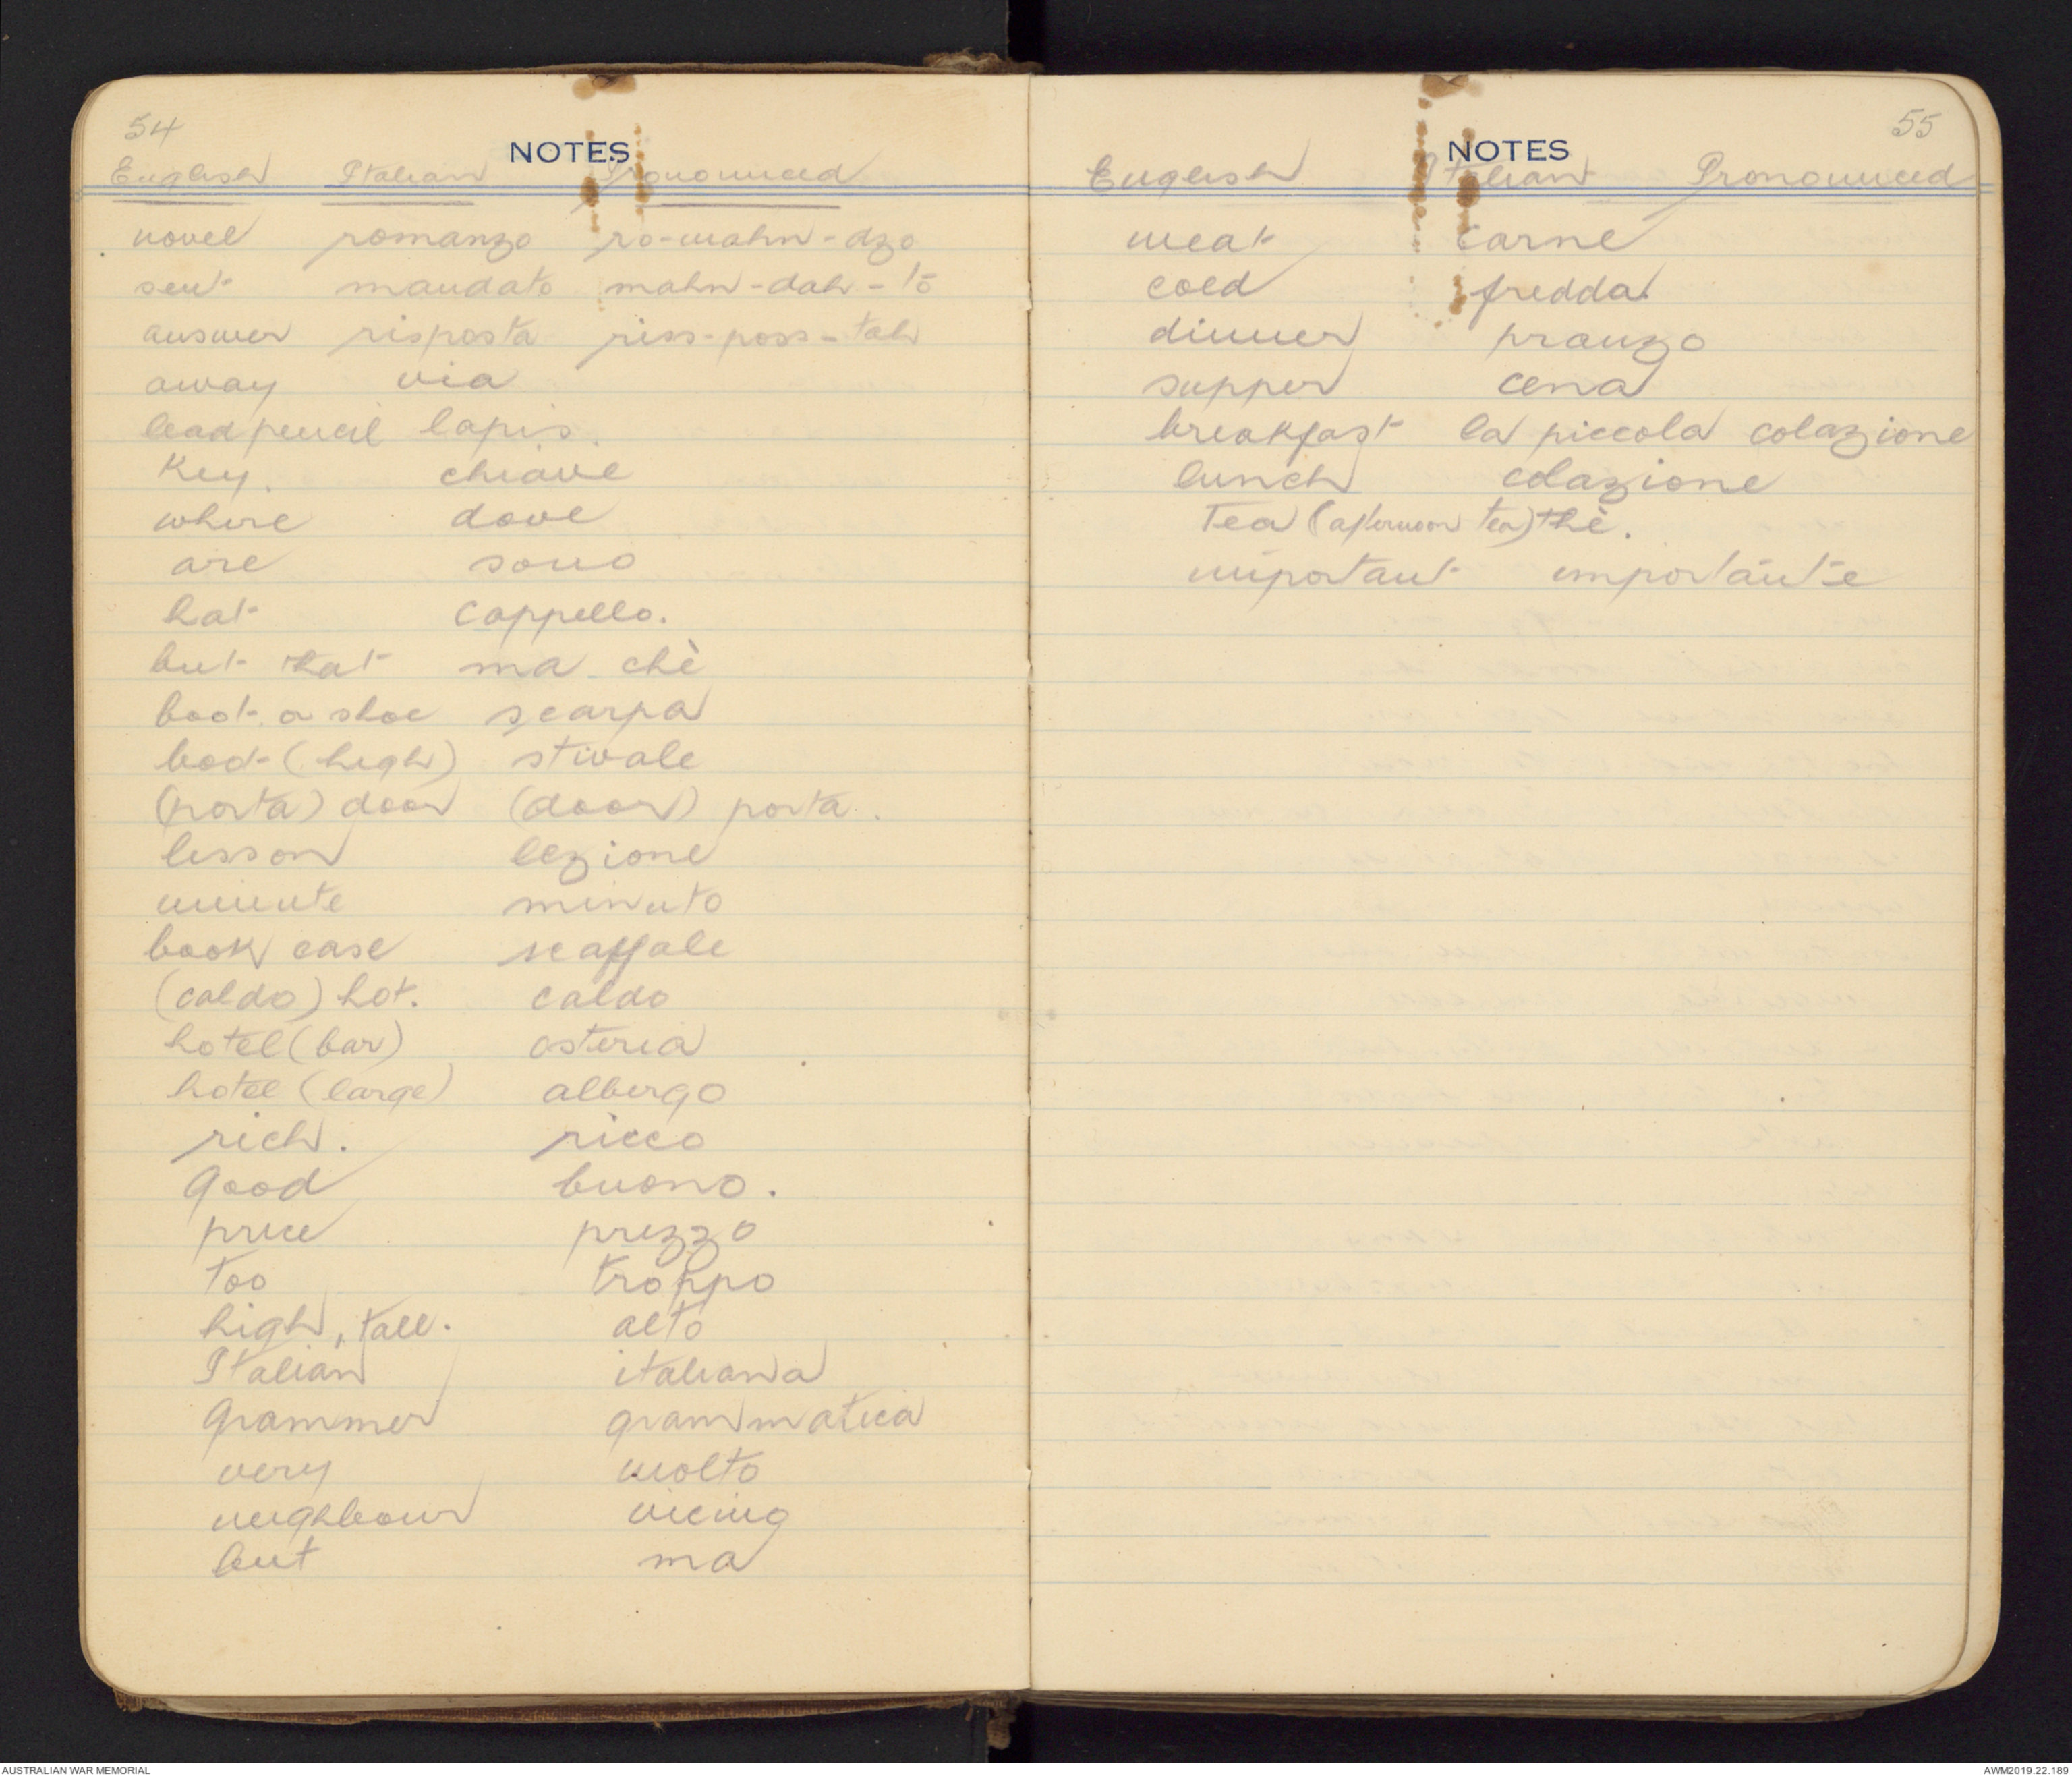 54
NOTES
English Italian Pronounced
novel romanzo ro-mahn-dzo
sent mandato mahn-dah-tō
answer risposta riss-poss-tah
away via
lead pencil lapis.
Key. chiave
where dove
are sono
hat cappello.
but that ma chè
boot or shoe scarpa
boot (high) stivale
(porta) door (door) porta.
lesson lezione
minute minuto
book case scaffale
(caldo) hot. caldo
hotel (bar) osteria
hotel (large) albergo
rich. ricco
good buono.
price prezzo
too troppo
high, tall. alto
Italian italiana
Grammer grammatica
very molto
neighbour vicino
but ma
55
NOTES
English Italian Pronounced
meat carne
cold fredda
dinner pranzo
supper cena
breakfast la piccola colazione
lunch colazione
Tea (afternoon tea) thè.
important importante
AUSTRALIAN WAR MEMORIAL
AWM2019.22.189